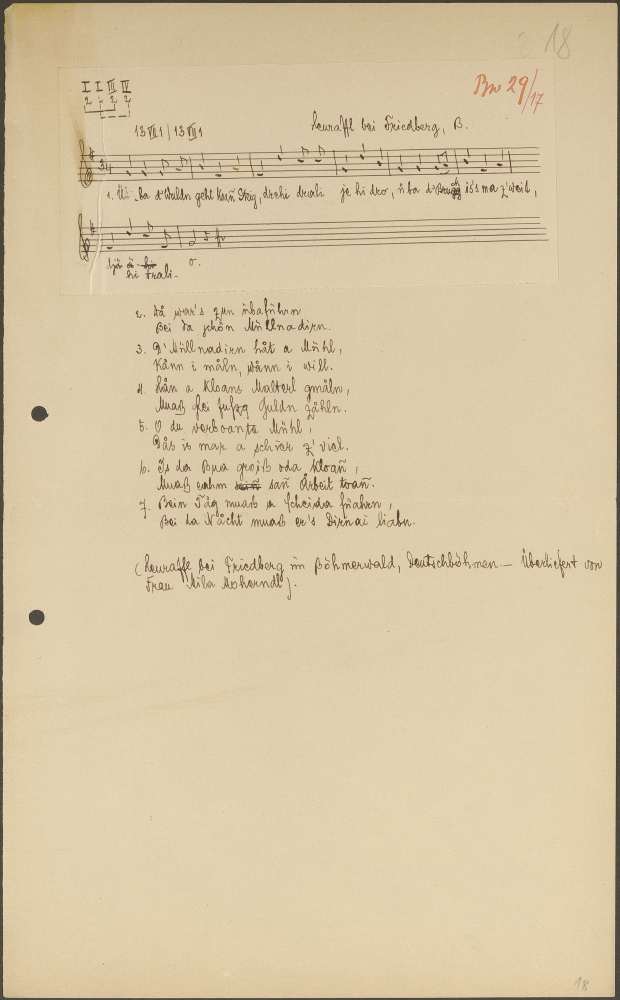 18
I I III IV
2 2 2 2
Bw 29/17
13 VII 1 | 13 VII 1
Heuraffl bei Friedberg, B.
1. Üi-ba d'Wuldn geht kañ Steig, drehi drali je hi dro, ü ba d' is's ma z'weit,
hi trali o.
2. Då wår's zun übaführn
Bei da schön Müllnadirn.
3. D'Müllnadirn håt a Mühl,
Kånn i måhln, wånn i will.
4. Hån a kloans Malterl gmåln,
Muaß glei fufzg Guldn zåhln.
5. O du verboante Mühl,
Dås is mar a schier z'viel.
6. Is da Bua groiß oda kloañ,
Muaß eahm sañ Årbeit toañ.
7. Bein Tåg muaß a Scheida füahrn,
Bei da Nåcht muaß er's Dirnai liabn.
(Heuraffl bei Friedberg im Böhmerwald, Deutschböhmen. — Überliefert von
Frau Mila).
18